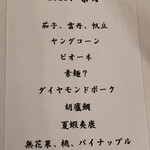 茄子、雲丹、帆立
ヤングコーン
ピオーネ
素麺？
ダイヤモンドポーク
胡廬鯛
夏蝦夷鹿
無花果、桃、パイナップル